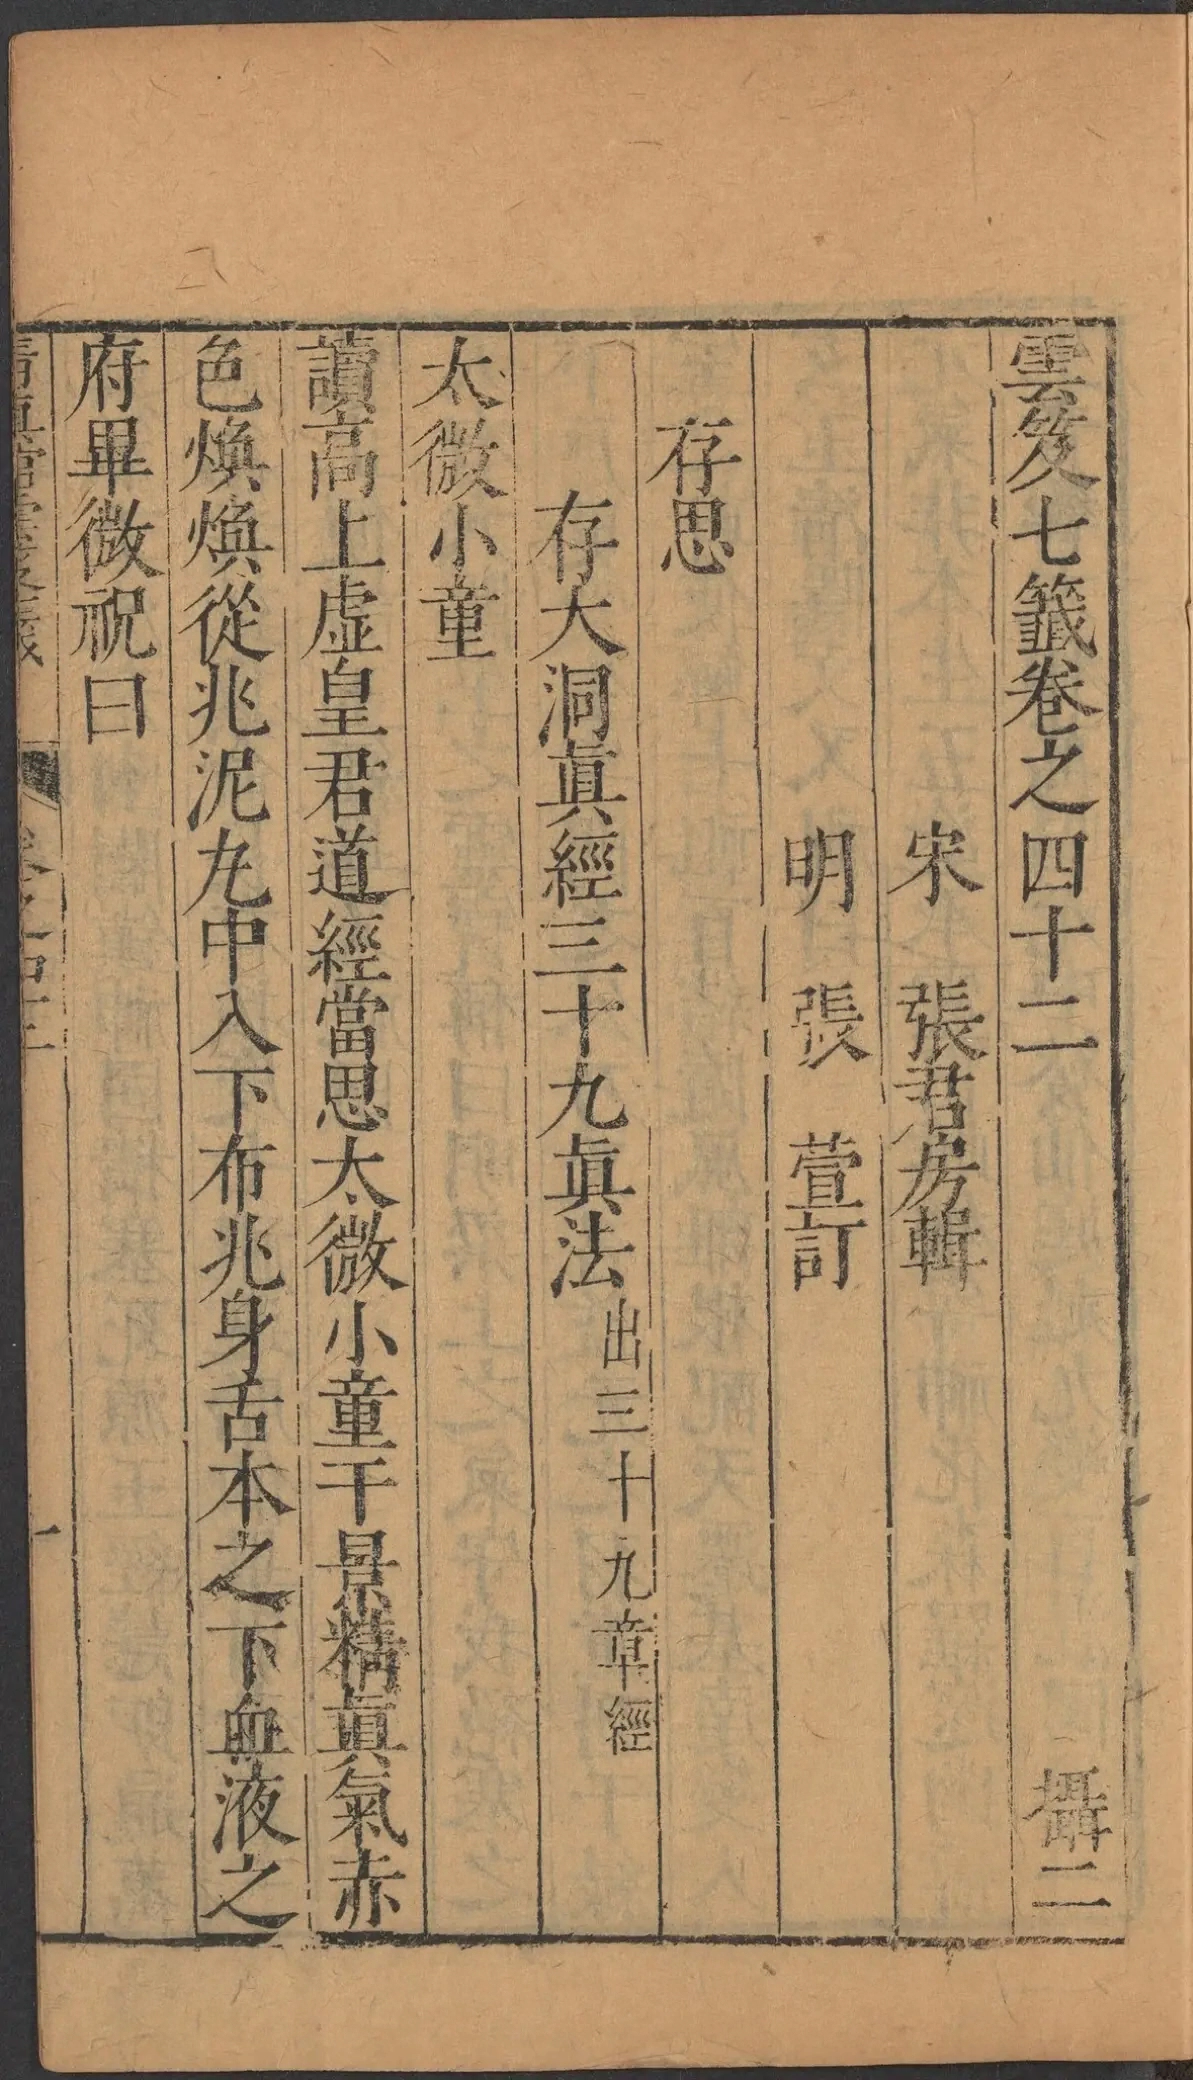 雲笈七籤卷之四十二 攝二
宋 張君房輯
明 張 萱訂
存思
存大洞眞經三十九眞法 出三十九章經
太微小童
讀高上虛皇君道經當思太微小童干景精眞氣赤
色煥煥從兆泥丸中入下布兆身舌本之下血液之
府畢微祝曰